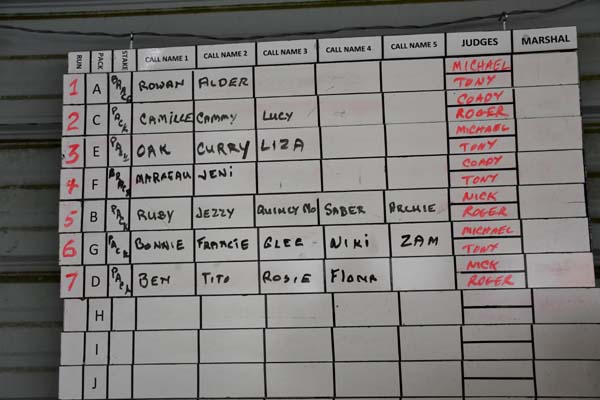 RUN PACK STAKE CALL NAME 1 CALL NAME 2 CALL NAME 3 CALL NAME 4 CALL NAME 5 JUDGES MARSHAL
1 A ROWAN ALDER MICHAEL TONY
2 C PACK CAMILLE CAMMY LUCY COADY ROGER
3 E PACK OAK CURRY LIZA MICHAEL TONY
4 F JENI COADY TONY
5 B PACK RUBY JEZZY QUINCY MO SABER ARCHIE NICK ROGER
6 G PACK BONNIE FRANCIE GLEE NIKI ZAM MICHAEL TONY
7 D PACK BEN TITO ROSIE FIONA NICK ROGER
H
I
J